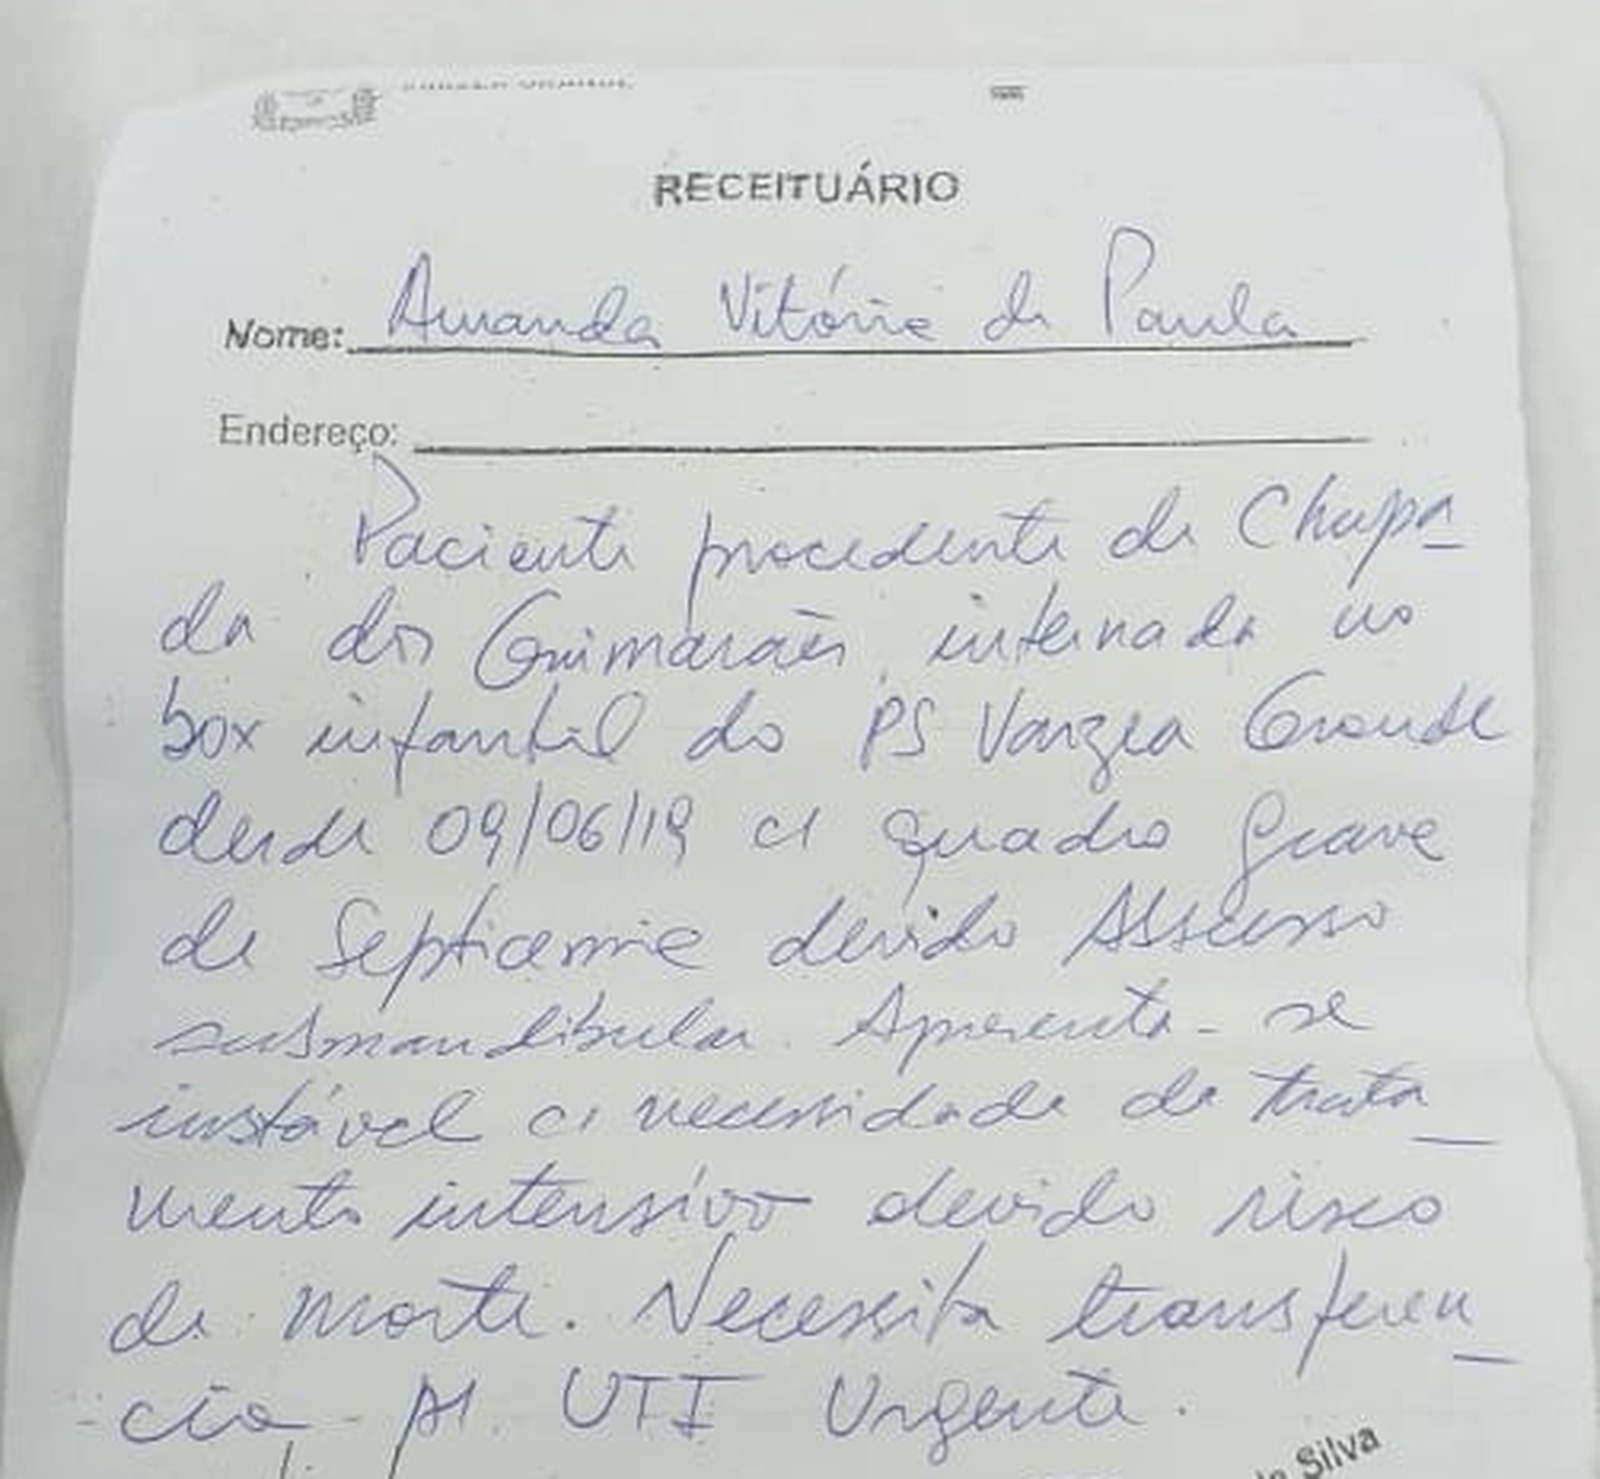 RECEITUÁRIO
Nome: Amanda Vitória de Paula
Endereço:
Paciente procedente de Chapa_
da dos Guimarães, internada no
box infantil do PS Varzea Grande
desde 09/06/19 c/ quadro grave
de Septicemia devido Abscesso
submandibular. Apresenta-se
instável c/ necessidade de trata_
mento intensivo devido risco
de morte. Necessita transferen_
cia p/. UTI Urgente.
Silva